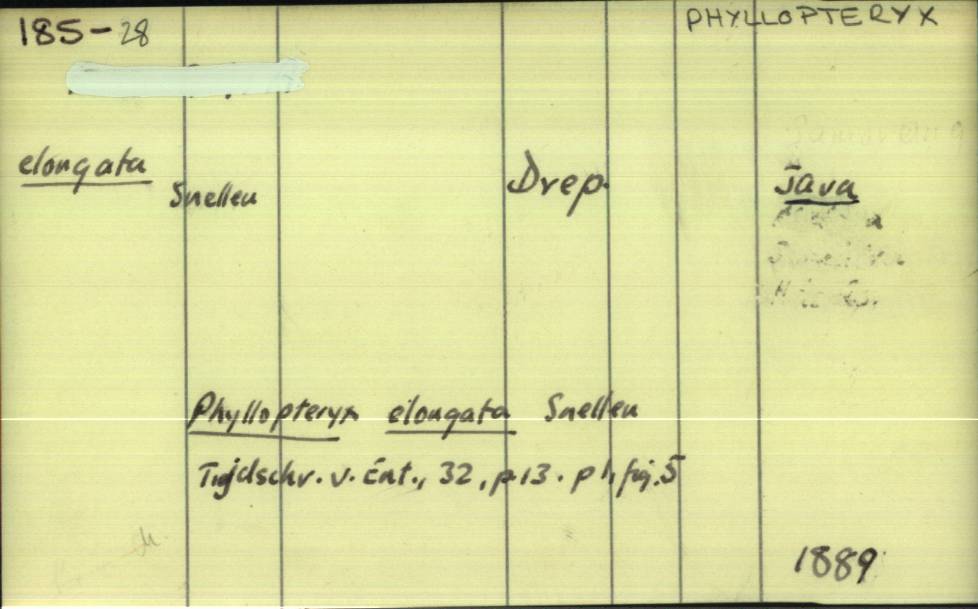 185-28
PHYLLOPTERYX
elongata
Snellen
Drep.
Java
Phyllopteryx elongata Snellen
Tijdschr. v. Ent., 32, p.13. pl, fig.5
1889